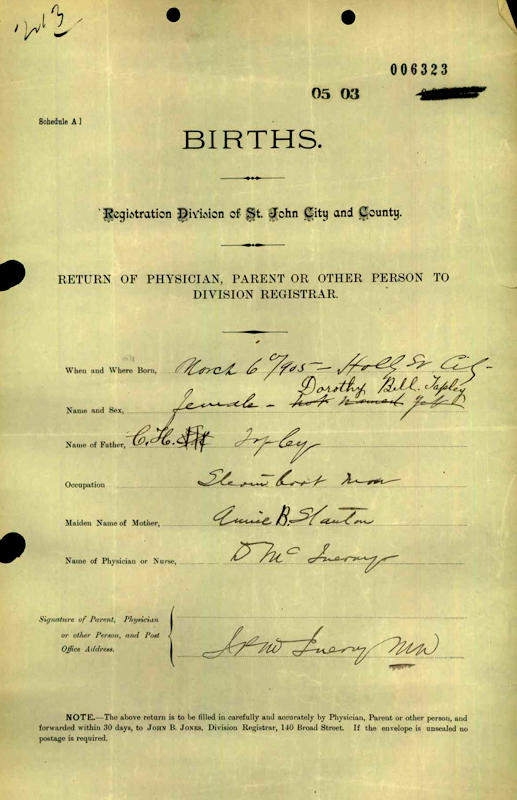 213
006323
05 03
Schedule A 1
BIRTHS.
Registration Division of St. John City and County.
RETURN OF PHYSICIAN, PARENT OR OTHER PERSON TO
DIVISION REGISTRAR.
When and Where Born, March 6th 1905 – Holly St City
Dorothy Bell Tapley
Name and Sex, female – not named yet
Name of Father, C. H. Tapley
Occupation Steam boat man
Maiden Name of Mother, Annie B. Stanton
Name of Physician or Nurse, D McInerny
Signature of Parent, Physician
or other Person, and Post
Office Address.
McInerny MD
NOTE.—The above return is to be filled in carefully and accurately by Physician, Parent or other person, and
forwarded within 30 days, to JOHN B. JONES, Division Registrar, 140 Broad Street. If the envelope is unsealed no
postage is required.